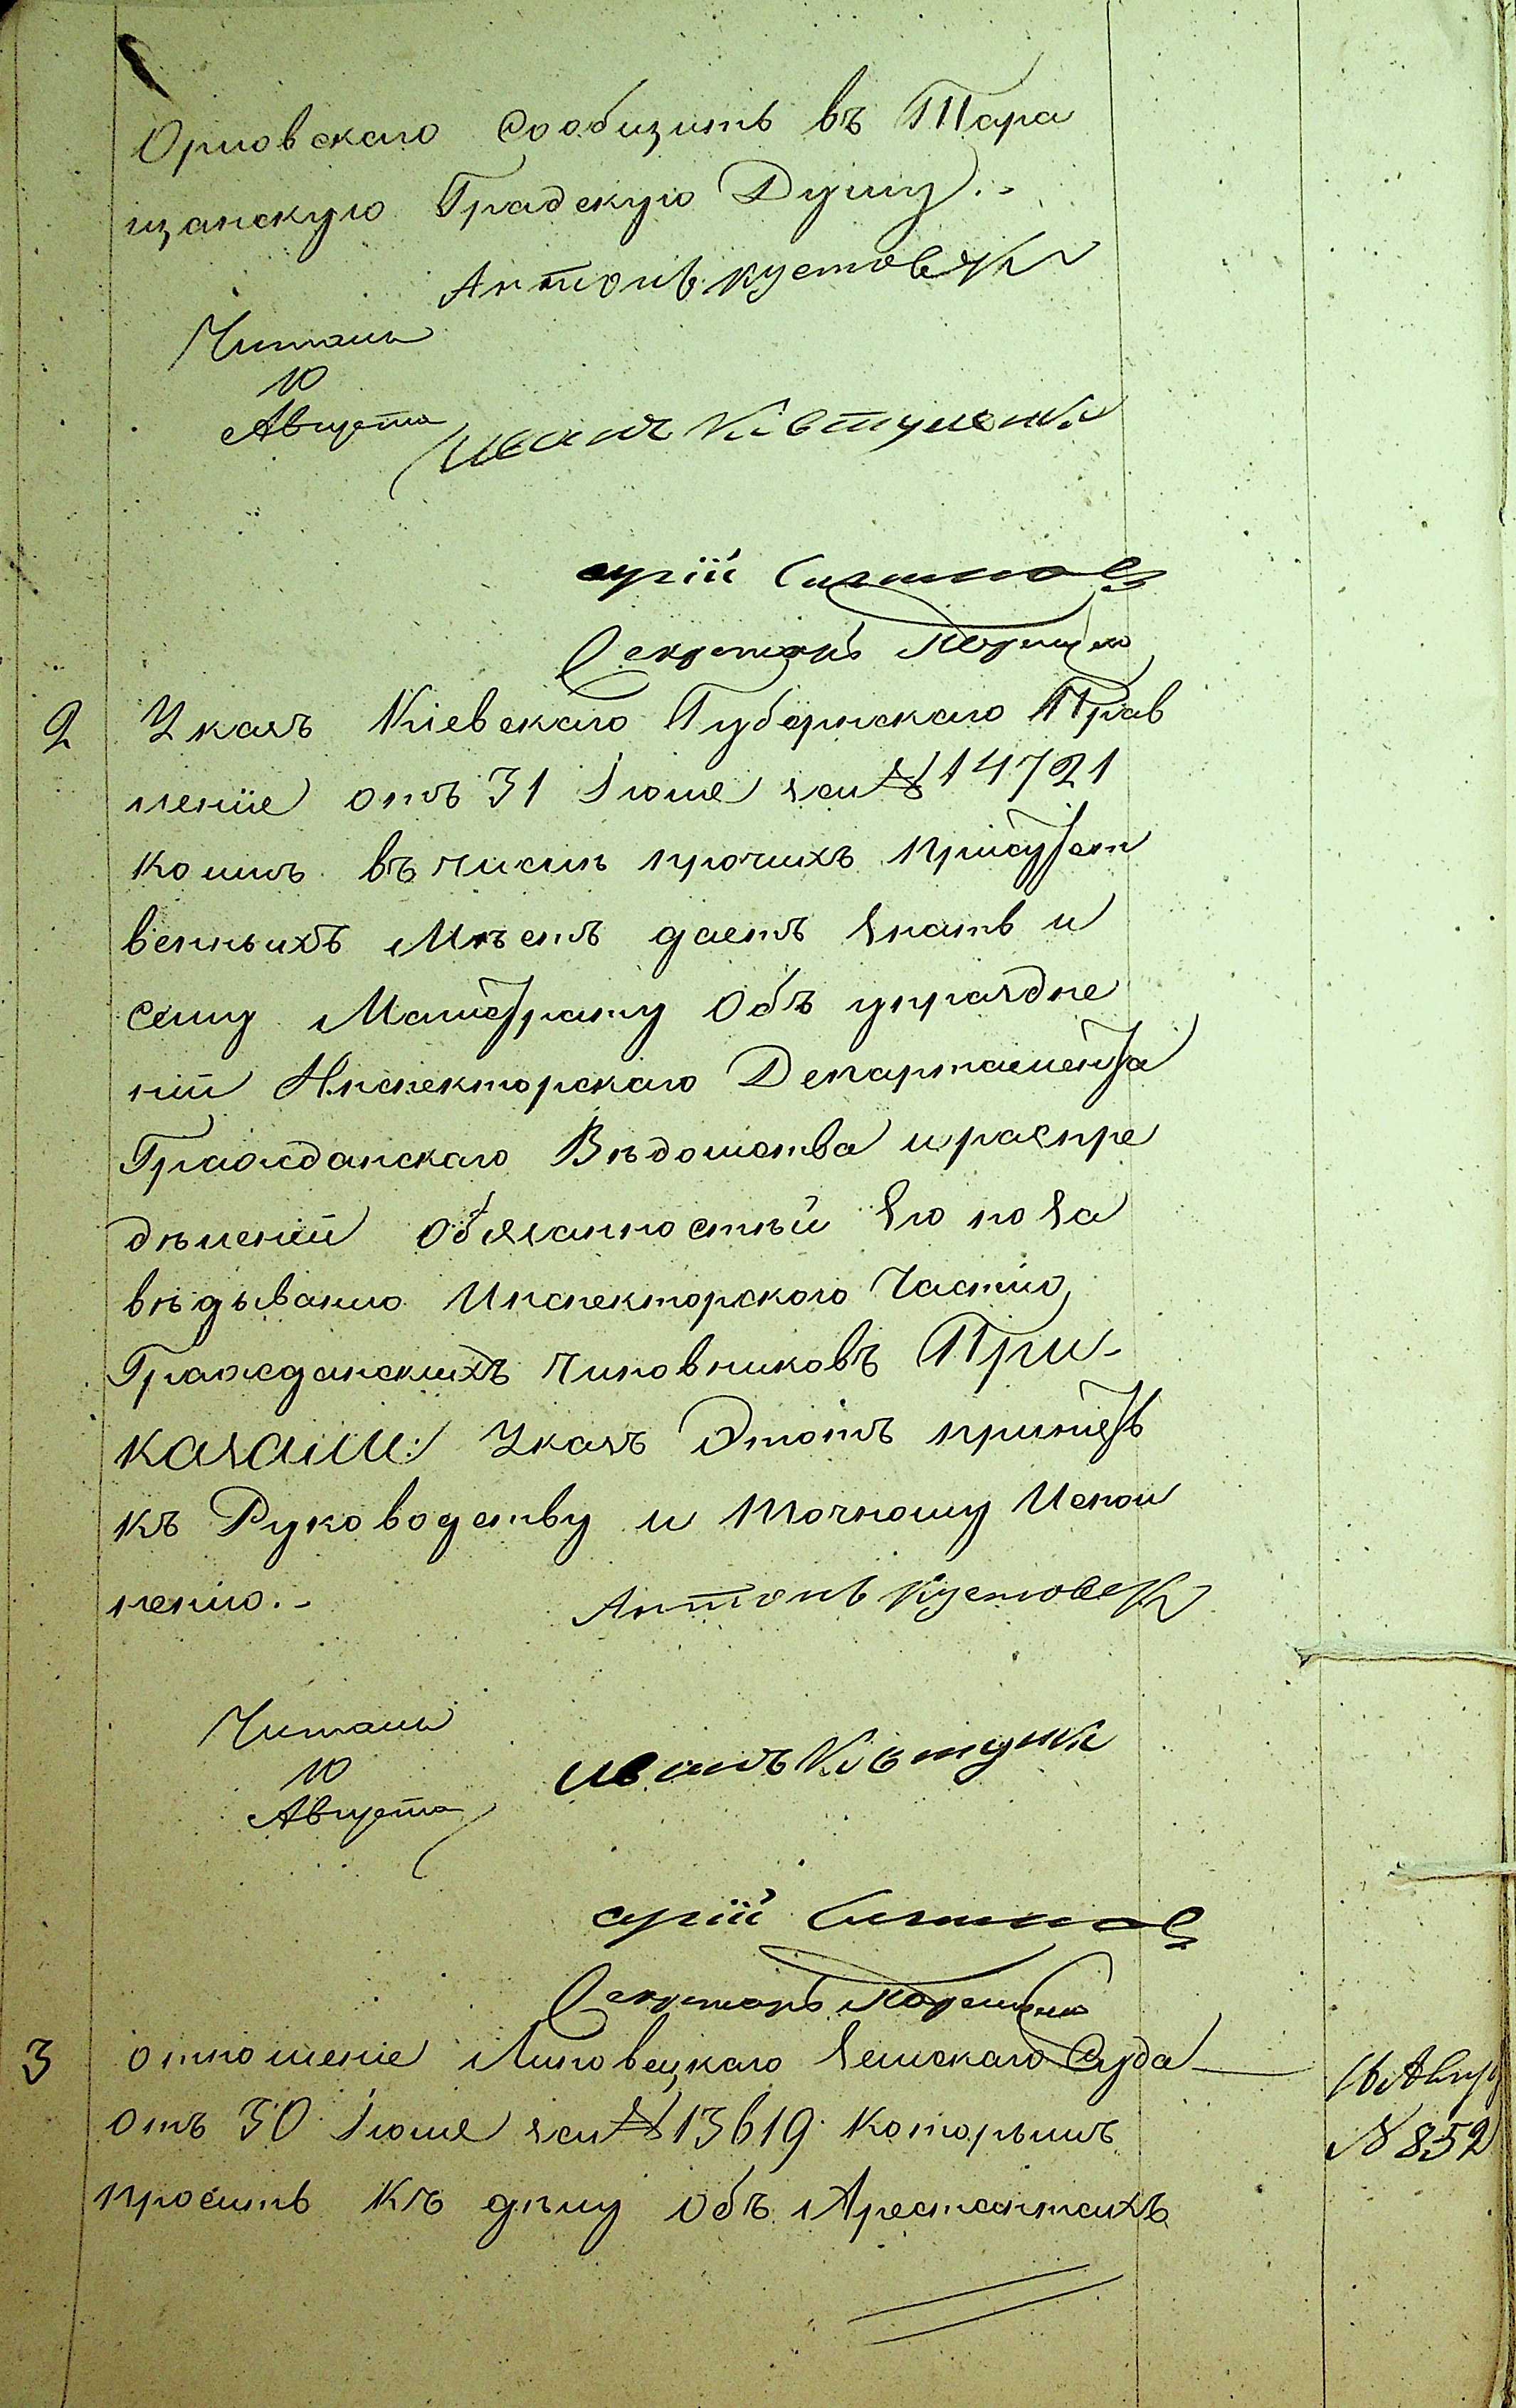 Орловскаго Сообщить въ Тара
щанскую Градскую Думу.-
Антонъ Кустовск
Читалъ
10
Августа
Иванъ
Секретарь
2 Указъ Кіевскаго Губернскаго Прав
леніе отъ 31 Іюля за № 14721
коимъ въ числѣ прочихъ присутст
венныхъ Мѣстъ даетъ знать и
сему Магистрату объ упраздне
ніи Инспекторскаго Департамента
Гражданскаго Вѣдомства и распре
дѣленіи обязанностѣй Его по За
вѣдыванію Инспекторского Частію
Гражданскихъ чиновниковъ При-
казали: Указъ Этотъ принять
къ Руководству и точному Испол
ненію.-
Антонъ Кустовск
Читалъ
10
Августа
Иванъ
Секретарь
3 отношеніе Липовецкаго Земскаго Суда
16 Авгу
отъ 30 Іюля за № 13619 которымъ
№ 852
проситъ Къ дѣлу объ Арестантахъ